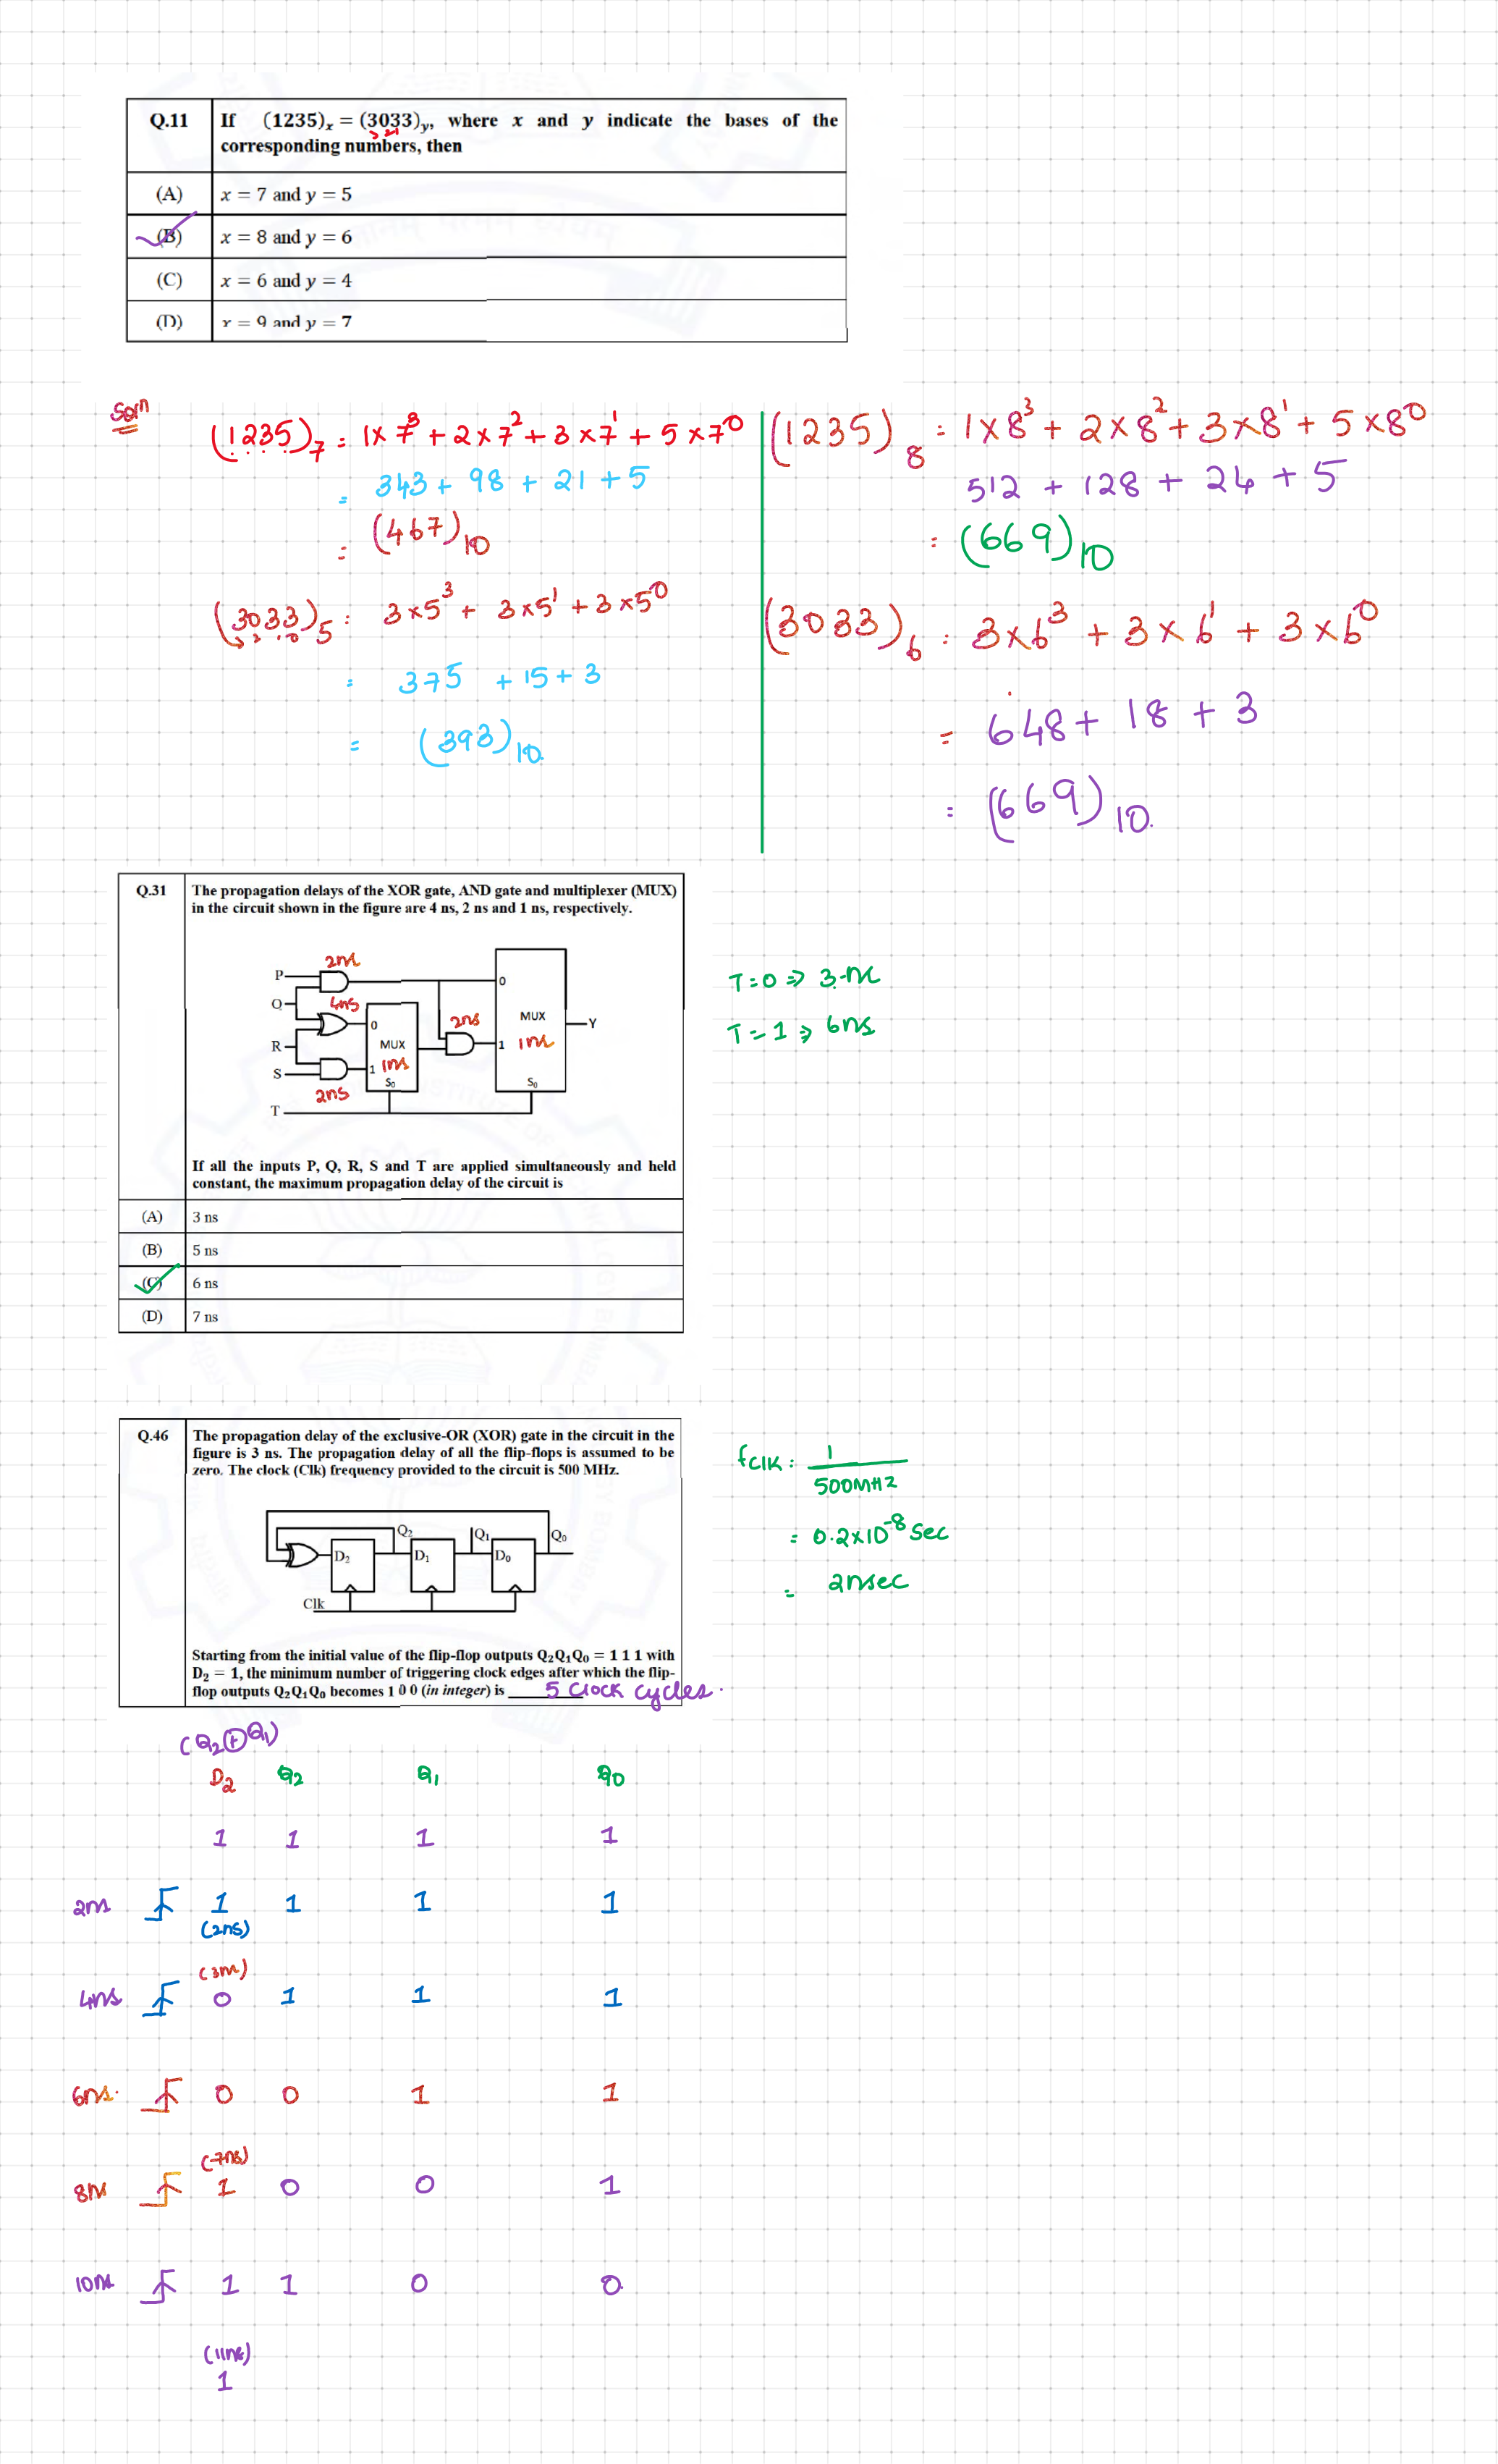 Q.11 If (1235)x = (3033)y, where x and y indicate the bases of the
corresponding numbers, then
(A) x = 7 and y = 5
(B) x = 8 and y = 6
(C) x = 6 and y = 4
(D) x = 9 and y = 7
Soln
(1235)₇ = 1×7³ + 2×7² + 3×7¹ + 5×7⁰
= 343 + 98 + 21 + 5
= (467)₁₀
(3033)₅ = 3×5³ + 3×5¹ + 3×5⁰
3 2 1 0
= 375 + 15 + 3
= (393)₁₀.
(1235)₈ = 1×8³ + 2×8² + 3×8¹ + 5×8⁰
512 + 128 + 24 + 5
= (669)₁₀
(3033)₆ = 3×6³ + 3×6¹ + 3×6⁰
= 648 + 18 + 3
= (669)₁₀.
Q.31 The propagation delays of the XOR gate, AND gate and multiplexer (MUX)
in the circuit shown in the figure are 4 ns, 2 ns and 1 ns, respectively.
2ns
P
0
Q
4ns
0
2ns
MUX
Y
R
MUX
1
1ns
S
1
1ns
S₀
S₀
2ns
T
T=0 ⇒ 3ns
T=1 ⇒ 6ns
If all the inputs P, Q, R, S and T are applied simultaneously and held
constant, the maximum propagation delay of the circuit is
(A) 3 ns
(B) 5 ns
(C) 6 ns
(D) 7 ns
Q.46 The propagation delay of the exclusive-OR (XOR) gate in the circuit in the
figure is 3 ns. The propagation delay of all the flip-flops is assumed to be
zero. The clock (Clk) frequency provided to the circuit is 500 MHz.
Q₂ Q₁ Q₀
D₂ D₁ D₀
Clk
fCLK = 1/500MHz
= 0.2×10⁻⁸ Sec
= 2nsec
Starting from the initial value of the flip-flop outputs Q₂Q₁Q₀ = 1 1 1 with
D₂ = 1, the minimum number of triggering clock edges after which the flip-
flop outputs Q₂Q₁Q₀ becomes 1 0 0 (in integer) is 5 Clock cycles.
(Q₂⊕Q₁)
D₂ Q₂ Q₁ Q₀
1 1 1 1
2ns 1 1 1 1
(2ns)
(3ns)
4ns 0 1 1 1
6ns. 0 0 1 1
(7ns)
8ns 1 0 0 1
10ns 1 1 0 0
(11ns)
1